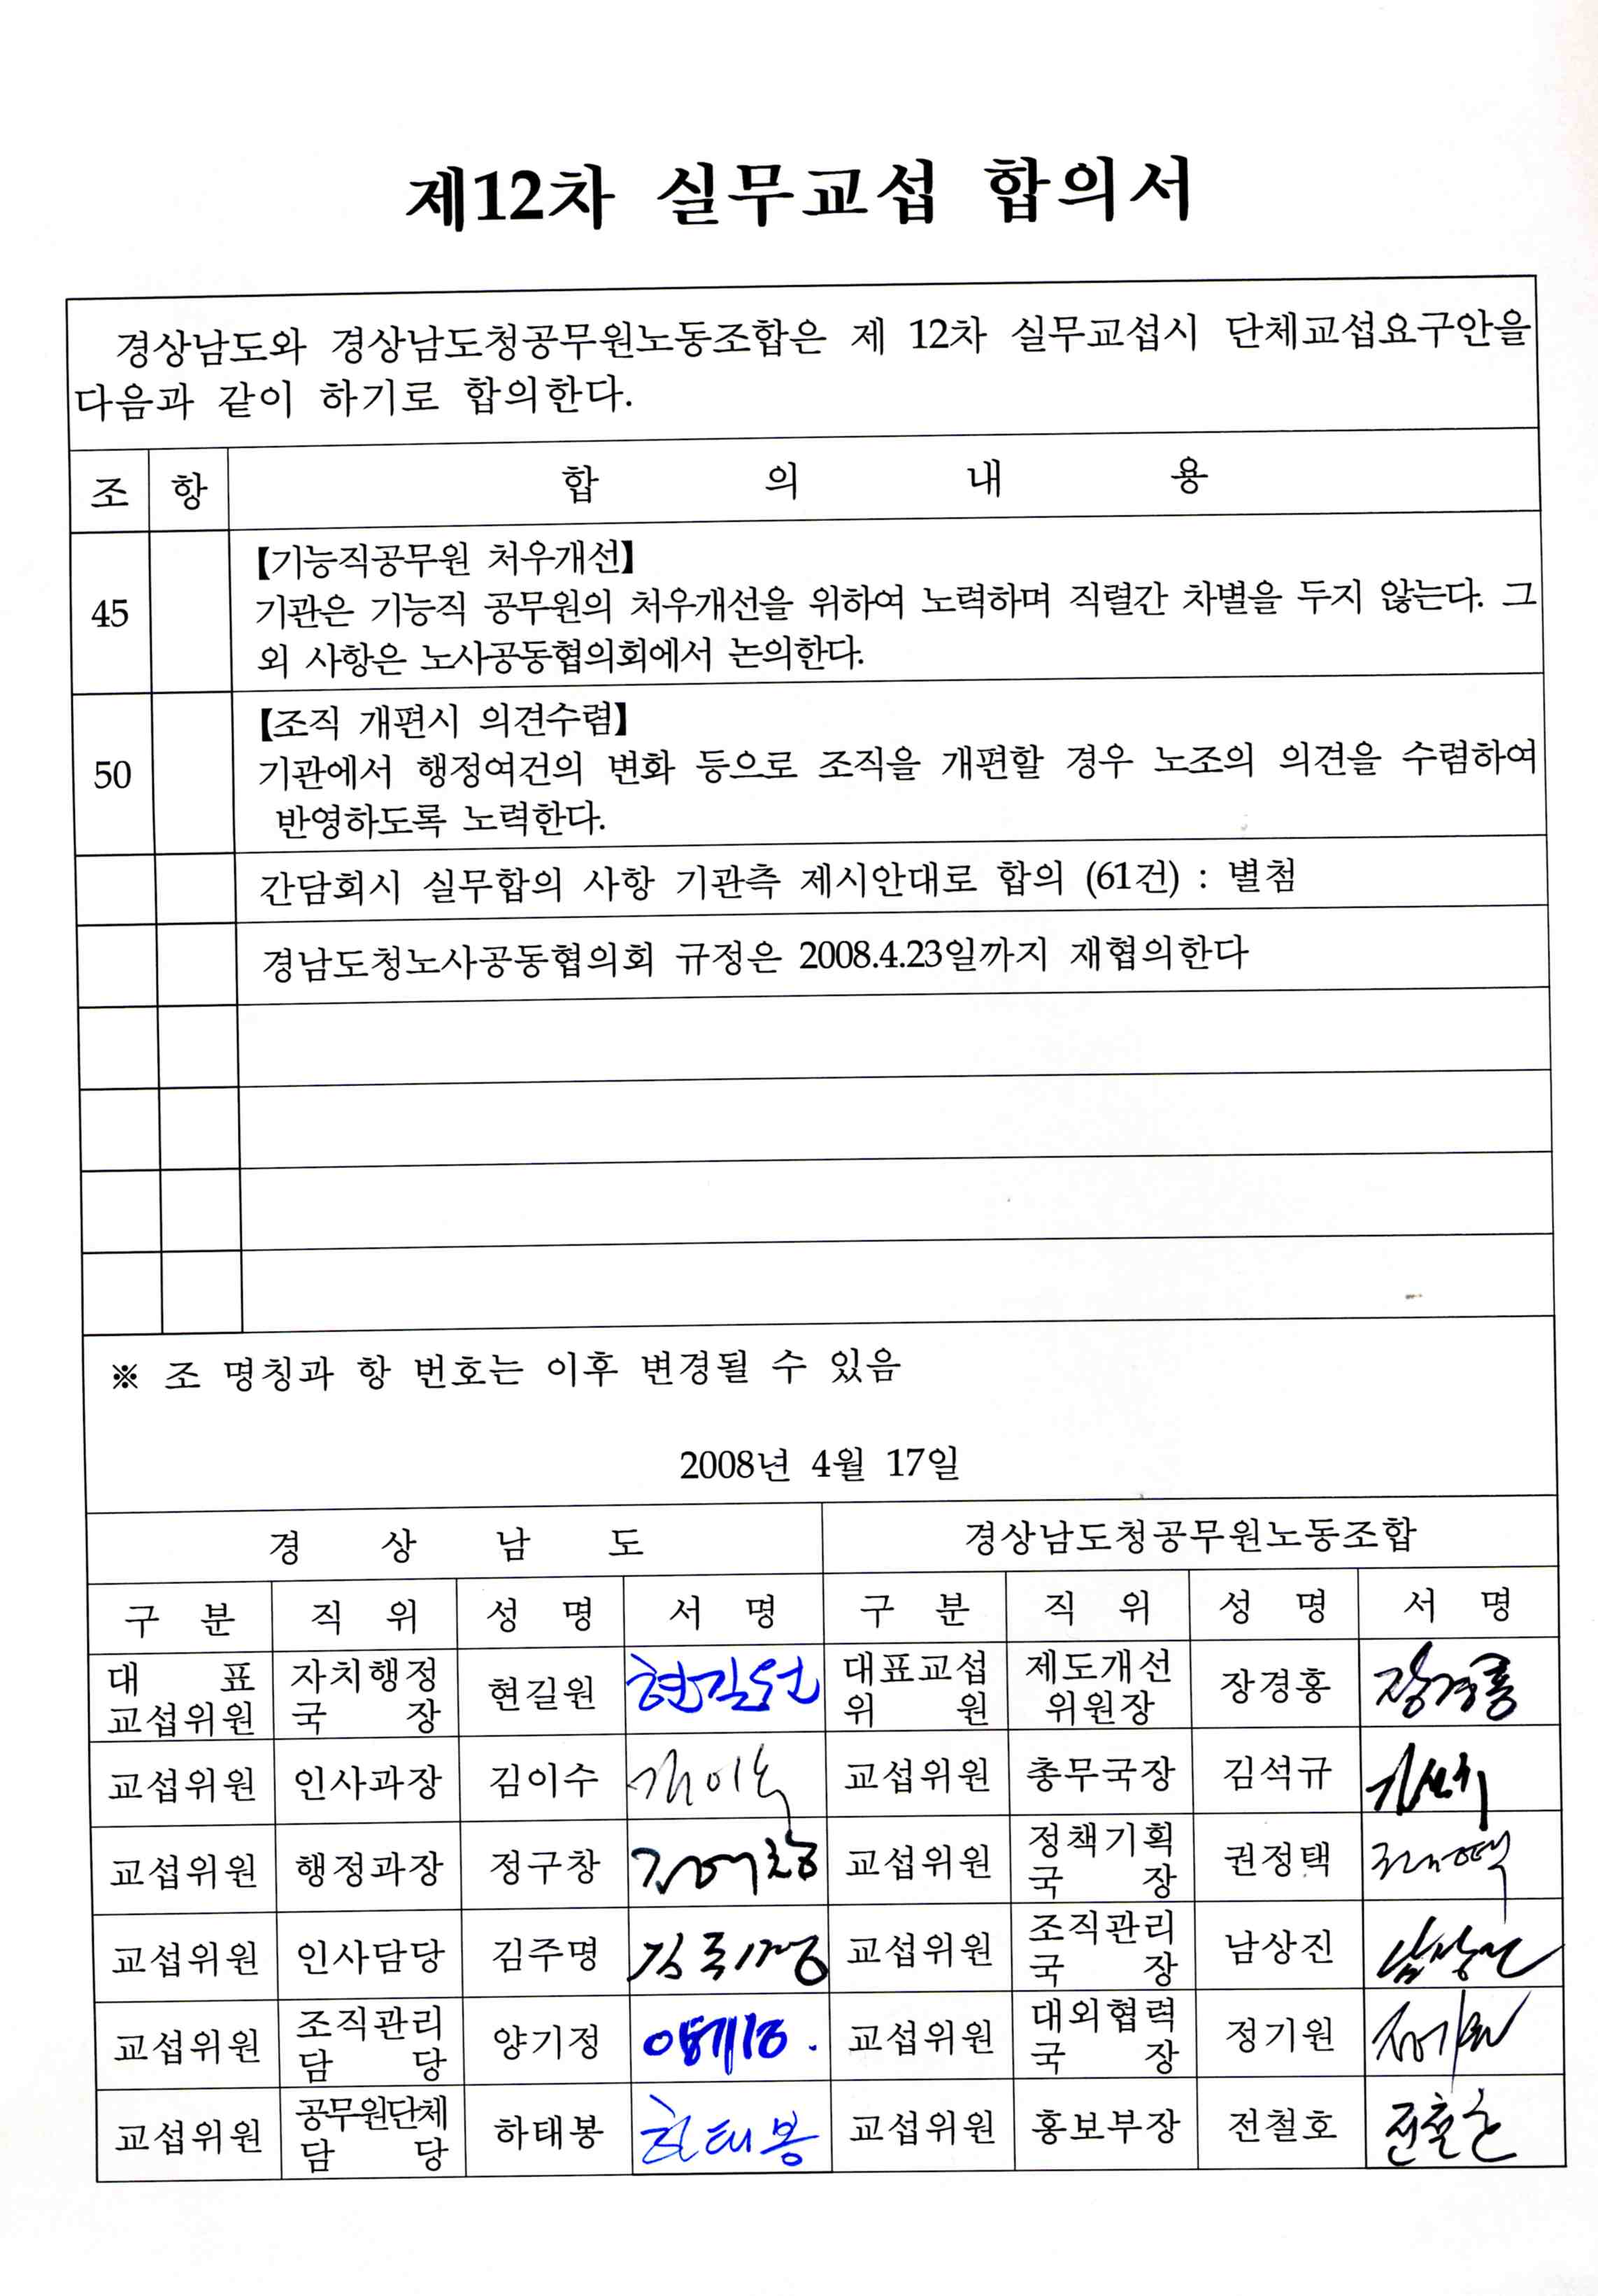 제12차 실무교섭 합의서
경상남도와 경상남도청공무원노동조합은 제 12차 실무교섭시 단체교섭요구안을
다음과 같이 하기로 합의한다.
조 항 합 의 내 용
【기능직공무원 처우개선】
45 기관은 기능직 공무원의 처우개선을 위하여 노력하며 직렬간 차별을 두지 않는다. 그
외 사항은 노사공동협의회에서 논의한다.
【조직 개편시 의견수렴】
50 기관에서 행정여건의 변화 등으로 조직을 개편할 경우 노조의 의견을 수렴하여
반영하도록 노력한다.
간담회시 실무합의 사항 기관측 제시안대로 합의 (61건) : 별첨
경남도청노사공동협의회 규정은 2008.4.23일까지 재협의한다
※ 조 명칭과 항 번호는 이후 변경될 수 있음
2008년 4월 17일
경 상 남 도 경상남도청공무원노동조합
구 분 직 위 성 명 서 명 구 분 직 위 성 명 서 명
대 표 자치행정 대표교섭 제도개선
교섭위원 국 장 현길원 현길원 위 원 위원장 장경홍 장경홍
교섭위원 인사과장 김이수 김이수 교섭위원 총무국장 김석규
정책기획
교섭위원 행정과장 정구창 교섭위원 국 장 권정택
조직관리
교섭위원 인사담당 김주명 김주명 교섭위원 국 장 남상진 남상진
조직관리 대외협력
교섭위원 담 당 양기정 교섭위원 국 장 정기원 정기원
공무원단체
교섭위원 담 당 하태봉 하태봉 교섭위원 홍보부장 전철호 전철호